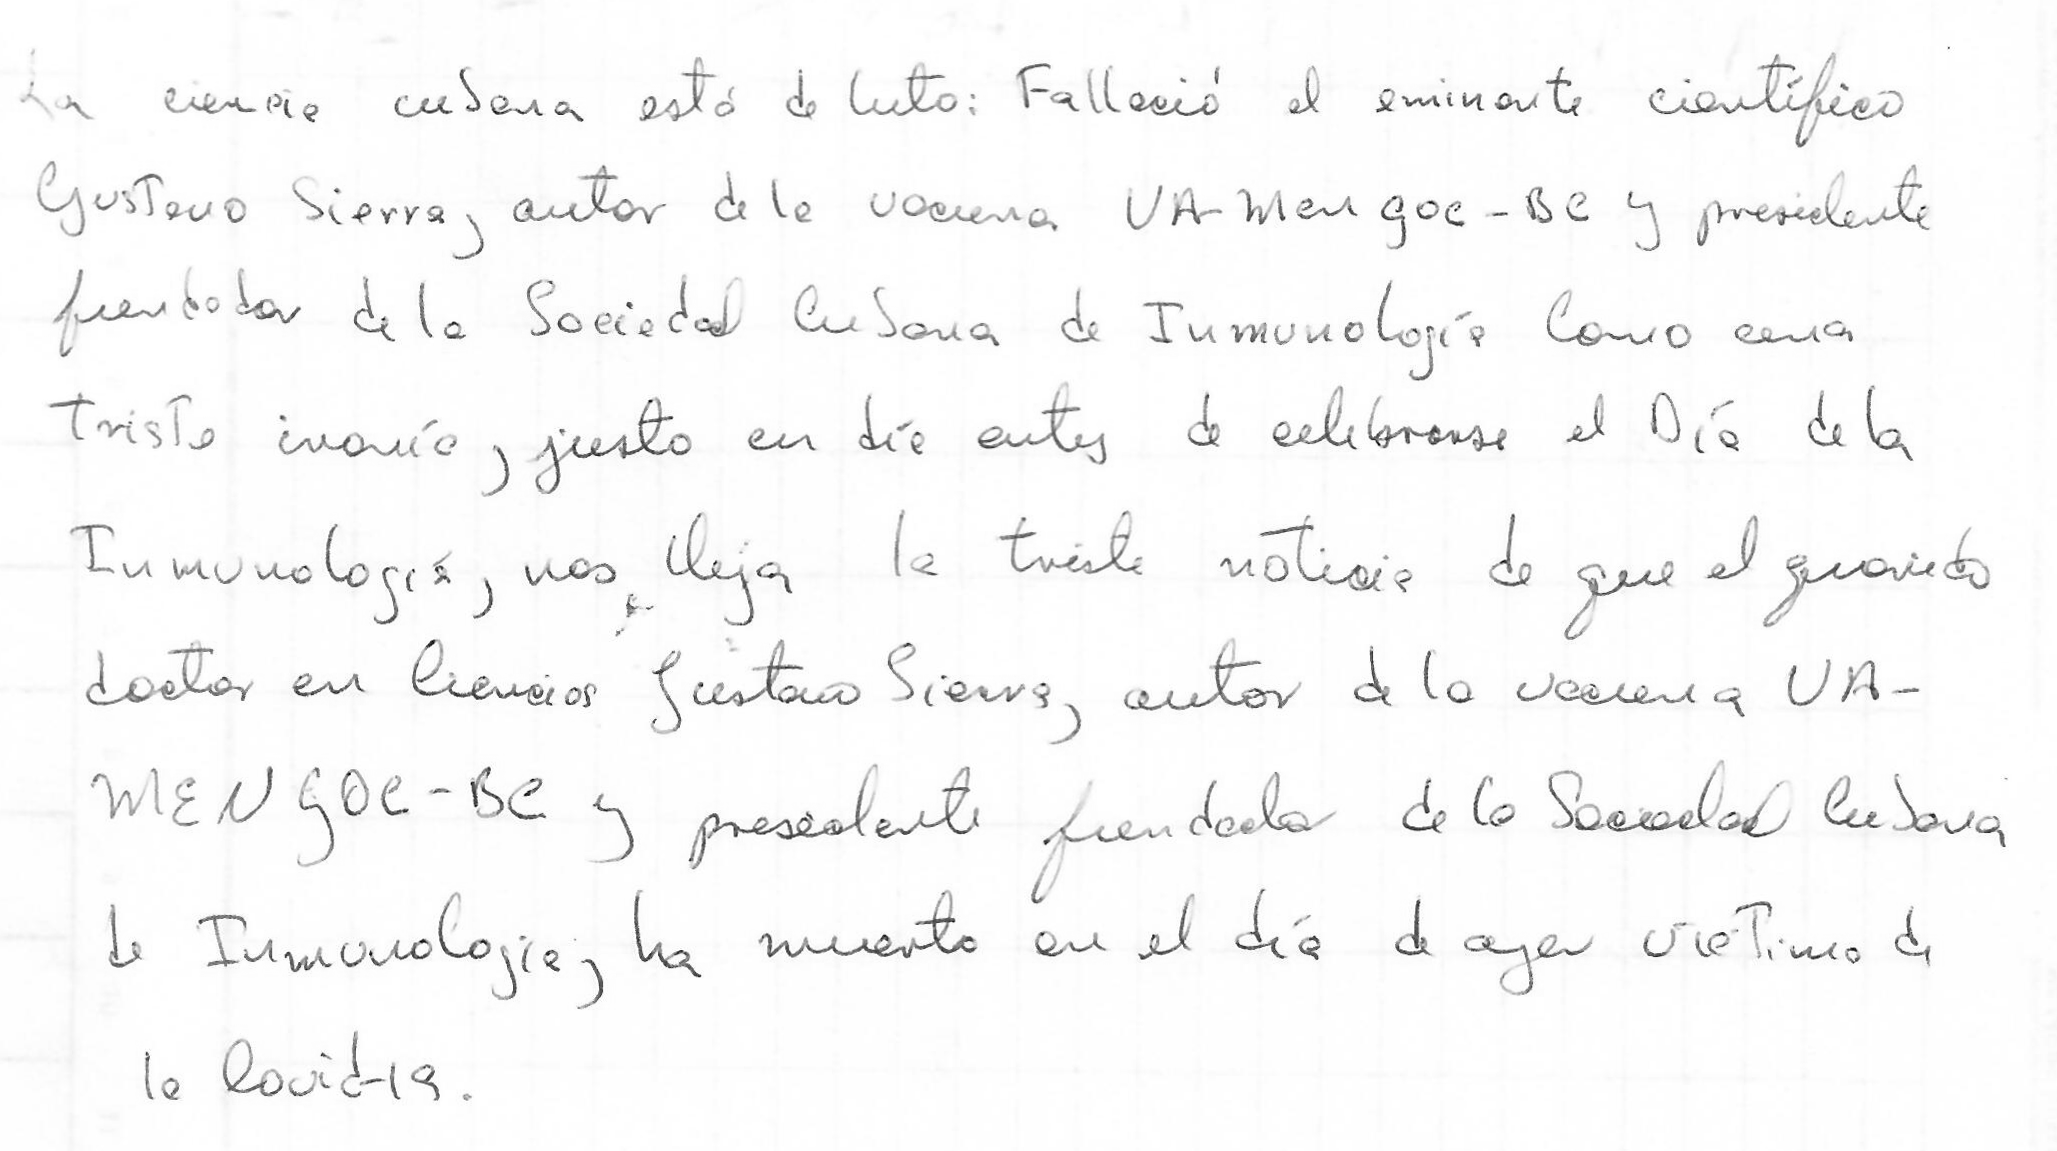 La ciencia cubana está de luto: Falleció el eminente científico
Gustavo Sierra, autor de la vacuna VA-Mengoc-BC y presidente
fundador de la Sociedad Cubana de Inmunología Como una
triste ironía, justo un día antes de celebrarse el Día de la
Inmunología, nos llega la triste noticia de que el querido
doctor en Ciencias Gustavo Sierra, autor de la vacuna VA-
MENGOC-BC y presidente fundador de la Sociedad Cubana
de Inmunología, ha muerto en el día de ayer víctima de
la Covid-19.